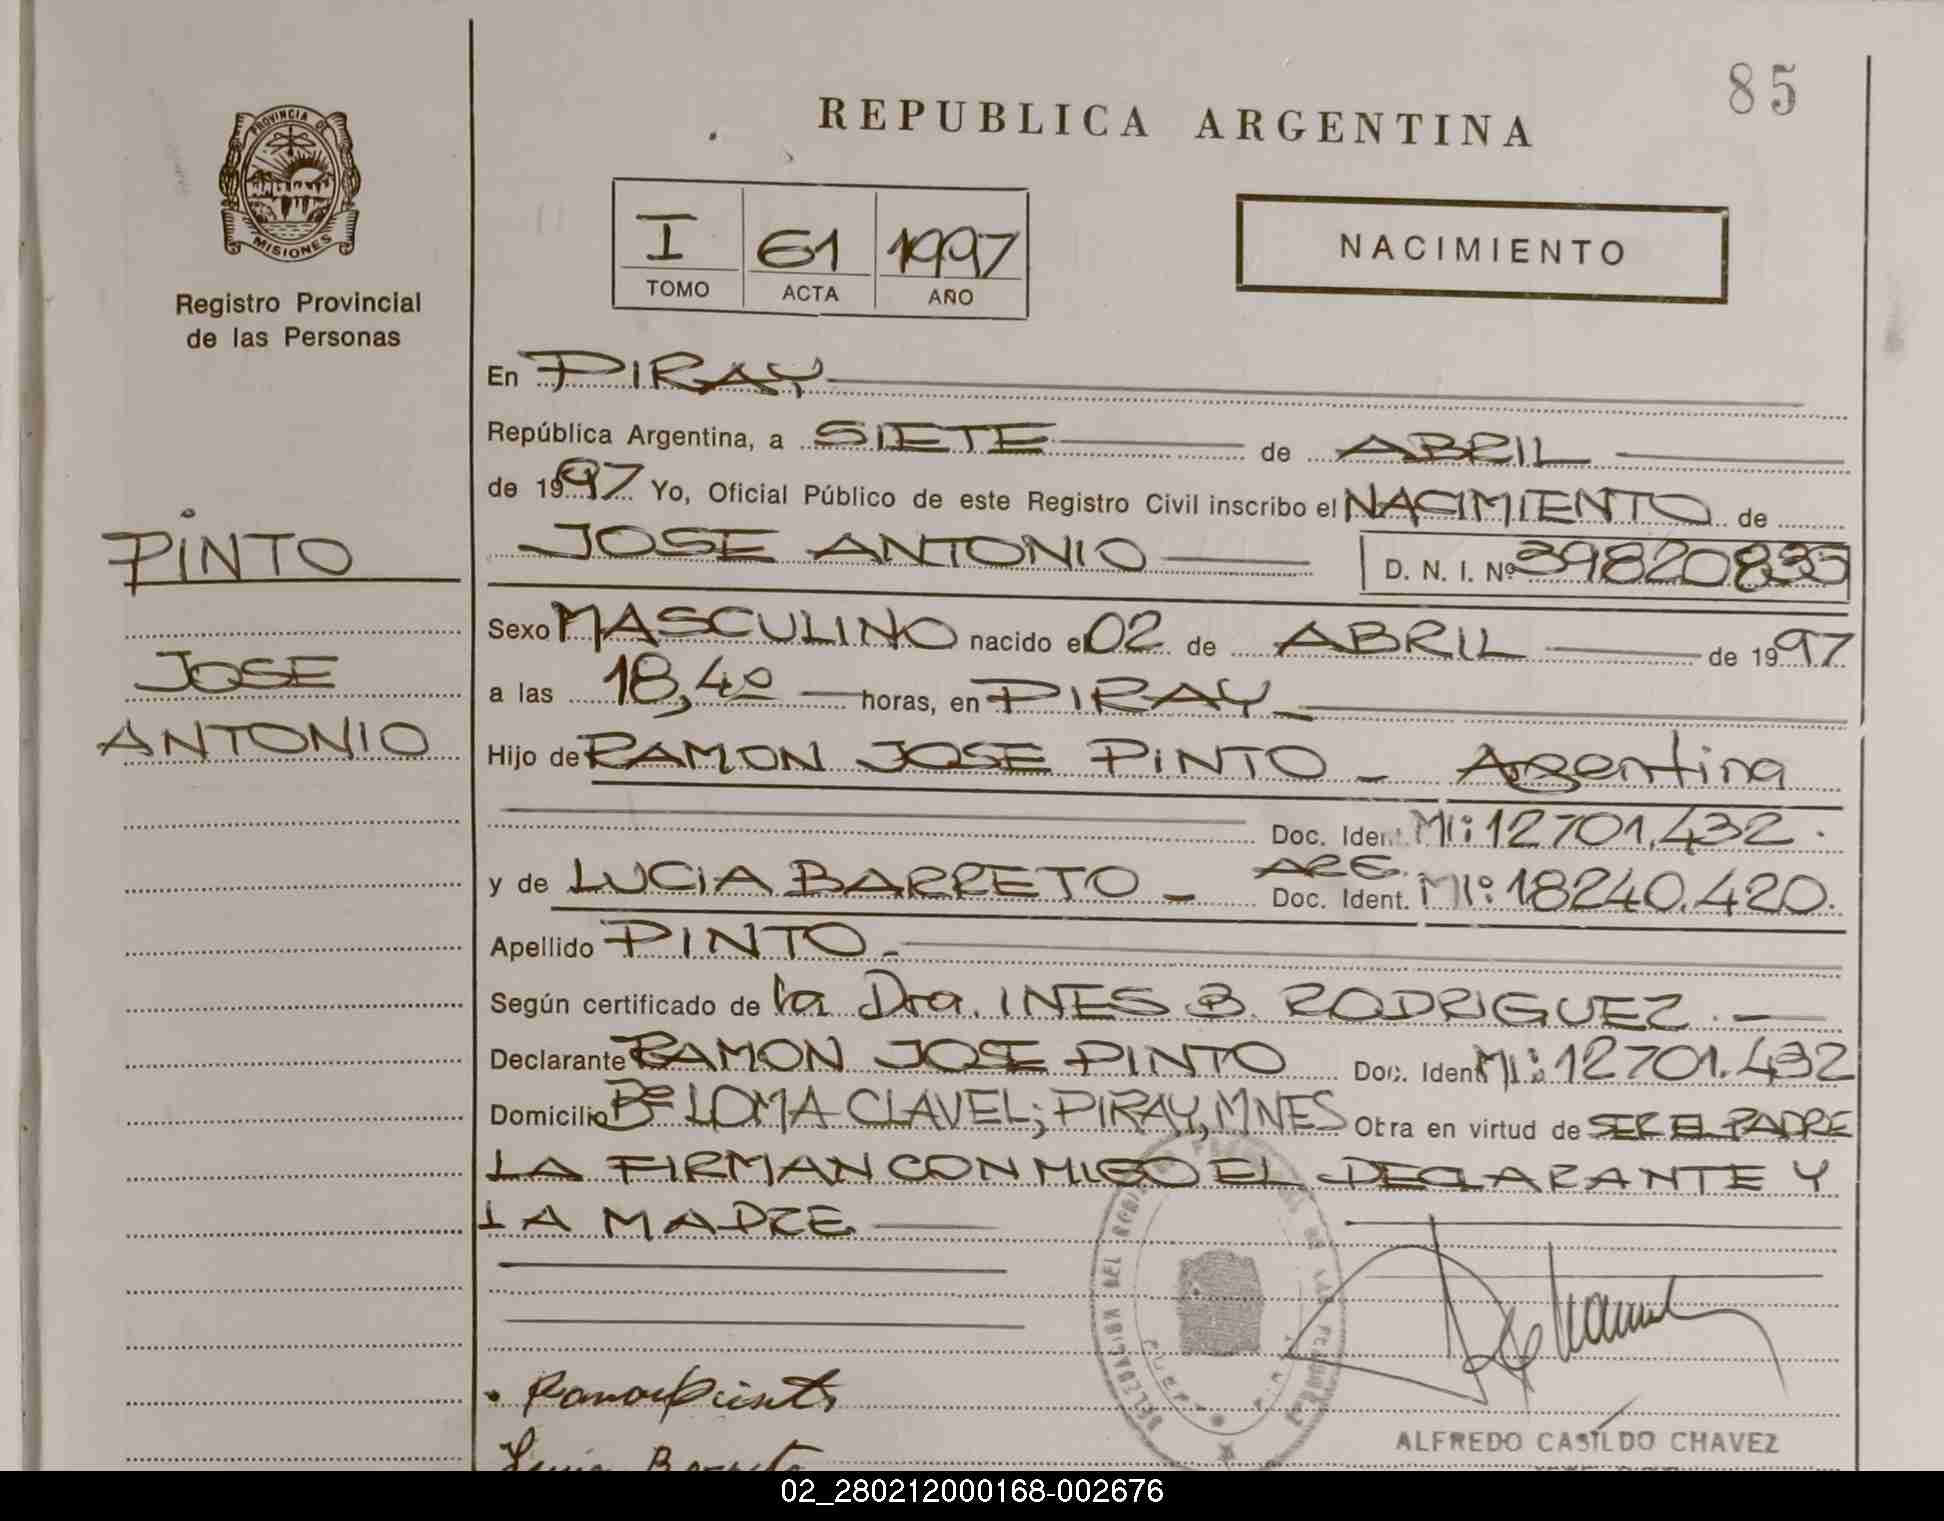 85
REPUBLICA ARGENTINA
PROVINCIA DE
MISIONES
Registro Provincial
de las Personas
I 61 1997
TOMO ACTA AÑO
NACIMIENTO
En PIRAY
República Argentina, a SIETE de ABRIL
de 1997 Yo, Oficial Público de este Registro Civil inscribo el NACIMIENTO de
JOSE ANTONIO D. N. I. Nº 39820835
PINTO
JOSE
ANTONIO
Sexo MASCULINO nacido el 02 de ABRIL de 1997
a las 18,40 horas, en PIRAY
Hijo de RAMON JOSE PINTO - Argentina
Doc. Ident. MI: 12701.432.
y de LUCIA BARRETO - ARG. Doc. Ident. MI: 18240.420.
Apellido PINTO.
Según certificado de la Dra. INES B. RODRIGUEZ.
Declarante RAMON JOSE PINTO Doc. Ident MI: 12701.432
Domicilio Bº LOMA CLAVEL; PIRAY, MNES Obra en virtud de SER EL PADRE
LA FIRMAN CONMIGO EL DECLARANTE Y
LA MADRE
DELEGACION DEL REGISTRO DE LAS PERSONAS
Ramon Pinto
Lucia Barreto
ALFREDO CASILDO CHAVEZ
02_280212000168-002676